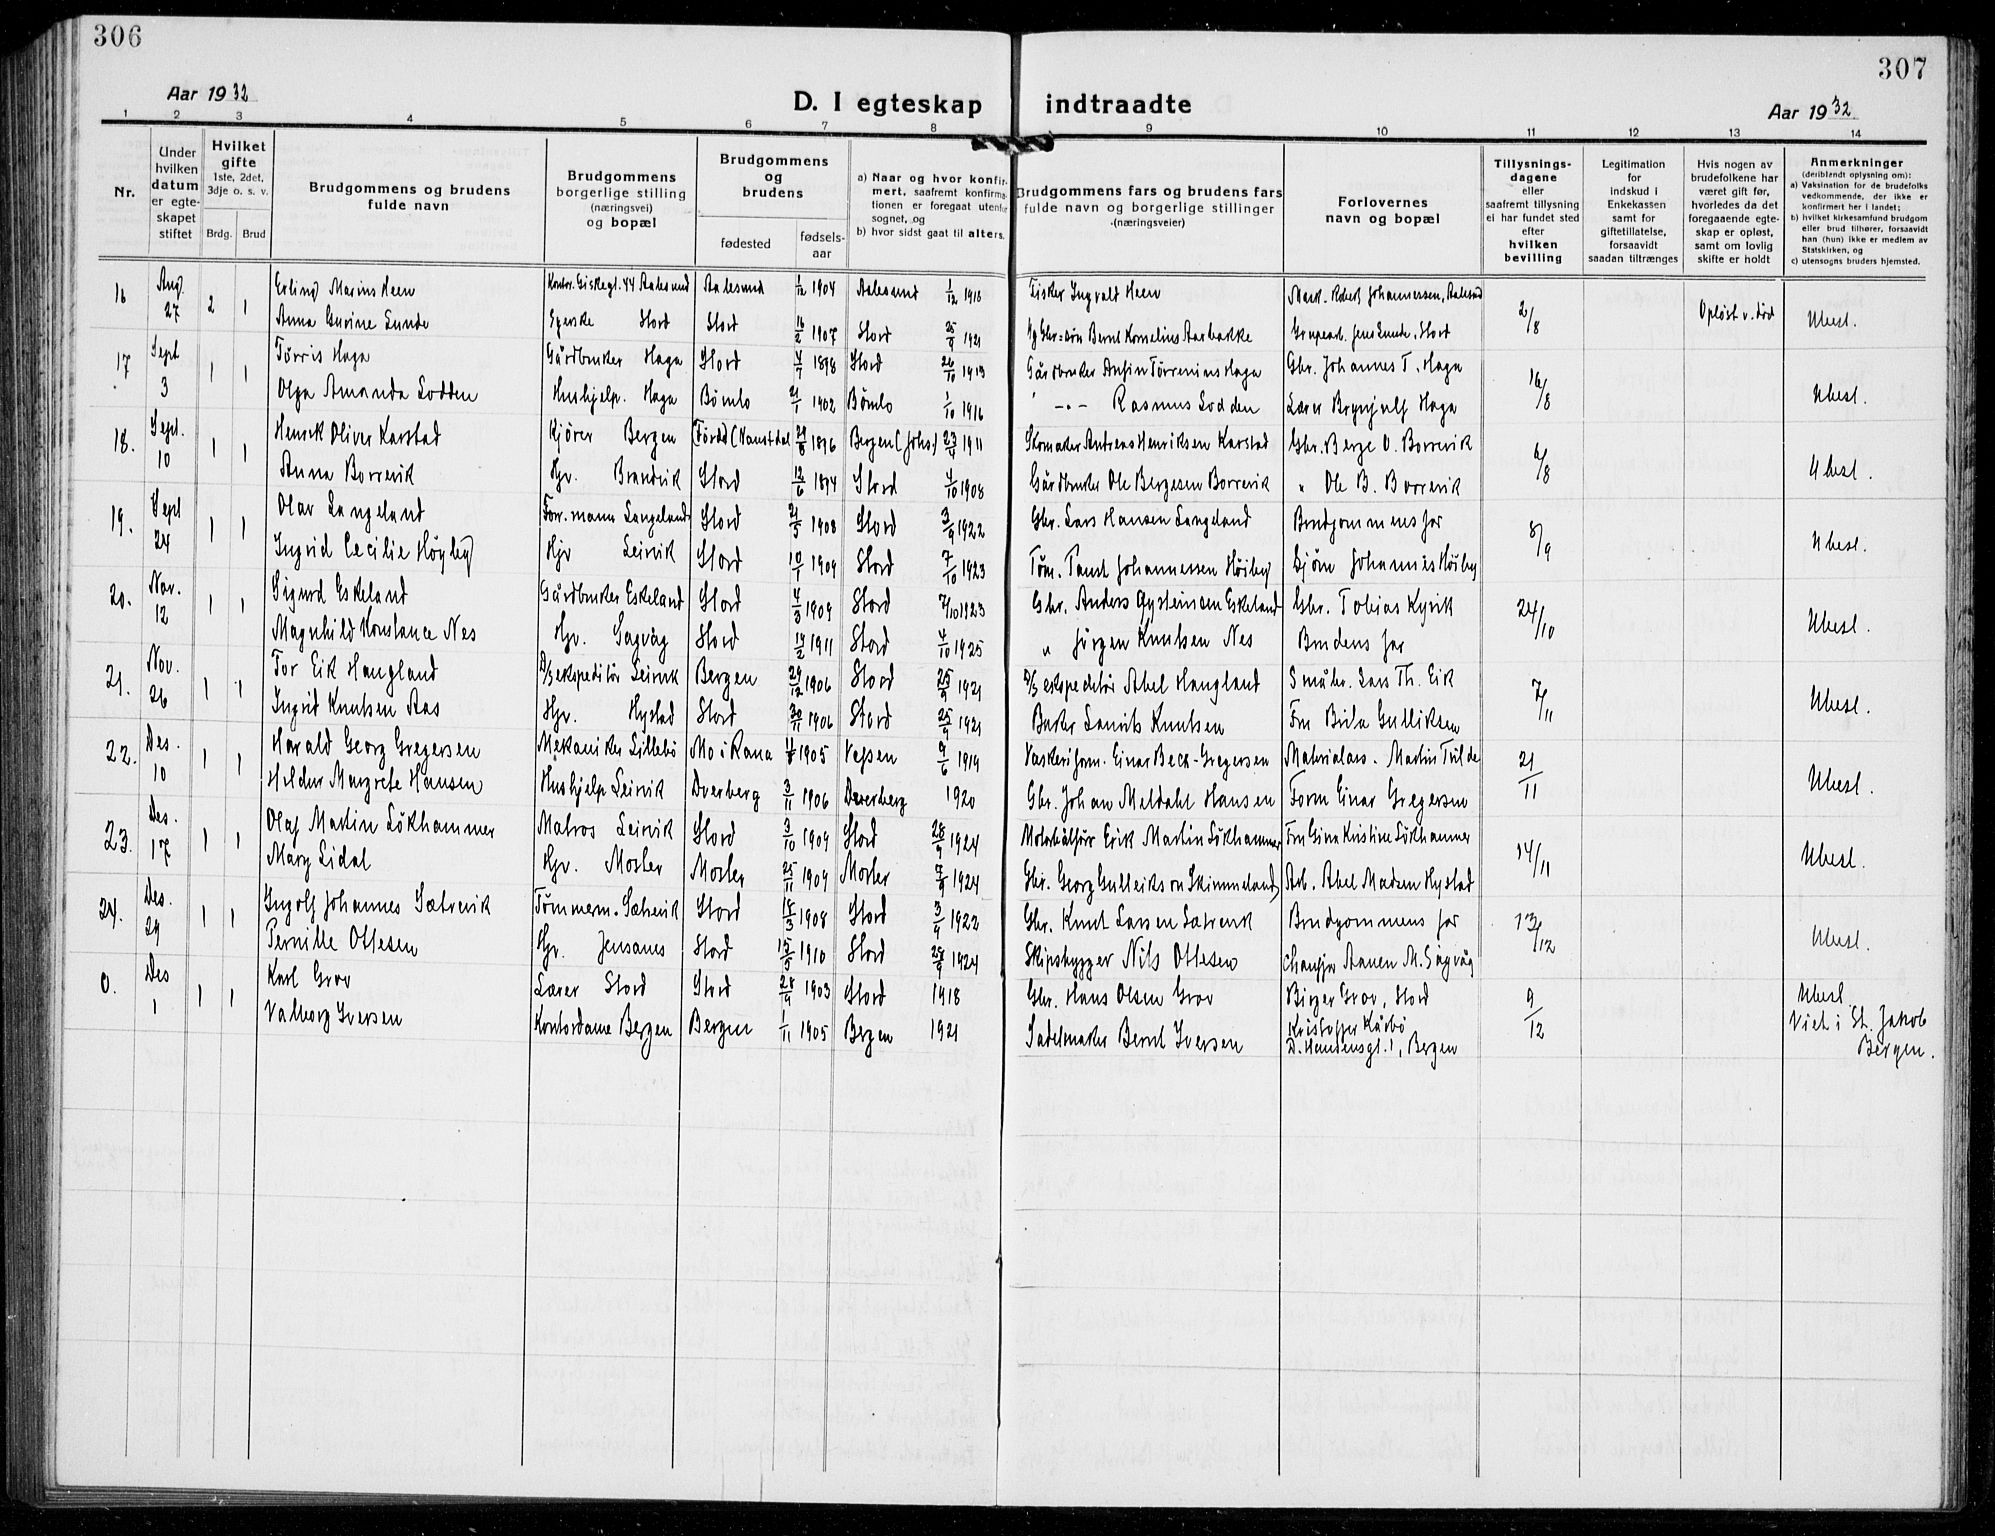 306
307
Aar 1932
D. I egteskap indtraadte
Aar 1932
1 2 3 4 5 6 7 8 9 10 11 12 13 14
Nr.
Under hvilken datum er egteskapet stiftet
Hvilket gifte 1ste, 2det, 3dje o. s. v.
Brdg. Brud
Brudgommens og brudens fulde navn
Brudgommens borgerlige stilling (næringsvei) og bopæl
Brudgommens og brudens
fødested
fødselsaar
a) Naar og hvor konfirmert, saafremt konfirmationen er foregaat utenfor sognet, og
b) hvor sidst gaat til alters.
Brudgommens fars og brudens fars fulde navn og borgerlige stillinger (næringsveier)
Forlovernes navn og bopæl
Tillysningsdagene eller saafremt tillysning ei har fundet sted efter hvilken bevilling
Legitimation for indskud i Enkekassen samt for giftetillatelse, forsaavidt saadan tiltrænges
Hvis nogen av brudefolkene har været gift før, hvorledes da det foregaaende egteskap er opløst, samt om lovlig skifte er holdt
Anmerkninger (deriblandt oplysning om):
a) Vaksination for de brudefolks vedkommende, der ikke er konfirmert her i landet;
b) hvilket kirkesamfund brudgom eller brud tilhører, forsaavidt han (hun) ikke er medlem av Statskirken, og
c) utensogns bruders hjemsted.
16 Aug. 27 2 1 Erling Marius Heen Kontor. Giskegt. 44 Aalesund Aalesund 1/12 1904 Aalesund 1/12 1918 Fisker Ingvald Heen Robert Johannessen, Aalesund 2/8 Opløst v. død Ubesl.
Anna Gurine Lunde Stord Stord 16/2 1907 Stord 25/9 1921 Bernt Kornelius Aarbakke Jens Lunde, Stord
17 Sept 3 1 1 Tørris Haga Gårdbruker Haga Stord 4/7 1898 Stord 26/10 1913 Gårdbruker Ansin Haga Gbr. Johannes T. Haga 16/8 Ubesl.
Olga Amanda Lodden Hushjelp. Haga Bømlo 21/1 1902 Bømlo 1/10 1916 -"- Rasmus Lodden Lærer Brynjulf Haga
18. Sept. 10 1 1 Henrik Oliver Karstad Kjører Bergen Førde 29/8 1896 Bergen (Johs.) 23/4 1911 Skomaker Andreas Henriksen Karstad Gbr. Berge O. Borrevik 6/8 Ubesl.
Anna Borrevik Hjv. Brandvik Stord 12/6 1894 Stord 4/10 1908 Gårdbruker Ole Bergesen Borrevik " Ole B. Borrevik
19. Sept 24 1 1 Olav Langeland Forr.mann Langeland Stord 21/5 1908 Stord 3/9 1922 Gbr. Lars Hansen Langeland Brudgommens far 8/9 Ubesl.
Ingrid Cecilie Høyby Hjv Leirvik Stord 10/1 1909 Stord 7/10 1923 Tøm. Johannessen Høiby Johannes Høiby
20. Nov. 12 1 1 Sigurd Eskeland Gårdbruker Eskeland Stord 4/3 1909 Stord 7/10 1923 Gbr. Anders Øysteinsen Eskeland Gbr. Tobias Kyvik 24/10 Ubesl.
Magnhild Konstance Nes Hjv. Sagvåg Stord 14/2 1911 Stord 4/10 1925 " Jørgen Knutsen Nes Brudens far
21. Nov. 26 1 1 Tor Eik Haugland D/S ekspeditør Leirvik Bergen 29/12 1906 Stord 25/9 1921 D/S ekspeditør Abel Haugland Småbr. Lars Th. Eik 7/11 Ubesl.
Ingrid Knutsen Aas Hjv. Hystad Stord 30/11 1906 Stord 25/9 1921 Baker Laurits Knutsen Fru Gulliksen
22. Des. 10 1 1 Harald Georg Gregersen Mekaniker Lillebø Mo i Rana 1905 Vefsen 9/6 1919 Vaskeriform. Einar Beck-Gregersen Martin Tvilde 21/11 Ubesl.
Heldur Margrete Hansen Hushjelp Leirvik Dverberg 3/11 1906 Dverberg 1920 Gbr. Johan Meldahl Hansen Form Einar Gregersen
23. Des. 17 1 1 Olaf Martin Løkhammer Matros Leirvik Stord 3/10 1909 Stord 28/9 1924 Motorbåtfører Erik Martin Løkhammer Fru Gina Kristine Løkhammer 14/11 Ubesl.
Mary Lidal Hjv. Moster Moster 25/11 1909 Moster 7/9 1924 Gbr. Georg Gulleikson (Skimmeland) Arb. Abel Madsen Hystad
24. Des. 29 1 1 Ingolf Johannes Sætrevik Tømmerm. Sætrevik Stord 18/3 1908 Stord 3/9 1922 Gbr. Knut Larsen Sætrevik Brudgommens far 13/12 Ubesl.
Pernille Ottesen Hjv. Jensanes Stord 15/5 1910 Stord 28/9 1924 Skipsbygger Nils Ottesen Chauffør Aanen M. Sagvåg
0. Des 1 1 1 Karl Grov Lærer Stord Stord 28/9 1903 Stord 1918 Gbr. Hans Olsen Grov Birger Grov, Stord 9/12 Ubesl.
Valborg Iversen Kontordame Bergen Bergen 1/11 1905 Bergen 1921 Sadelmaker Bernt Iversen Kristoffer Kårbø Bergen Viet i St. Jakob Bergen.